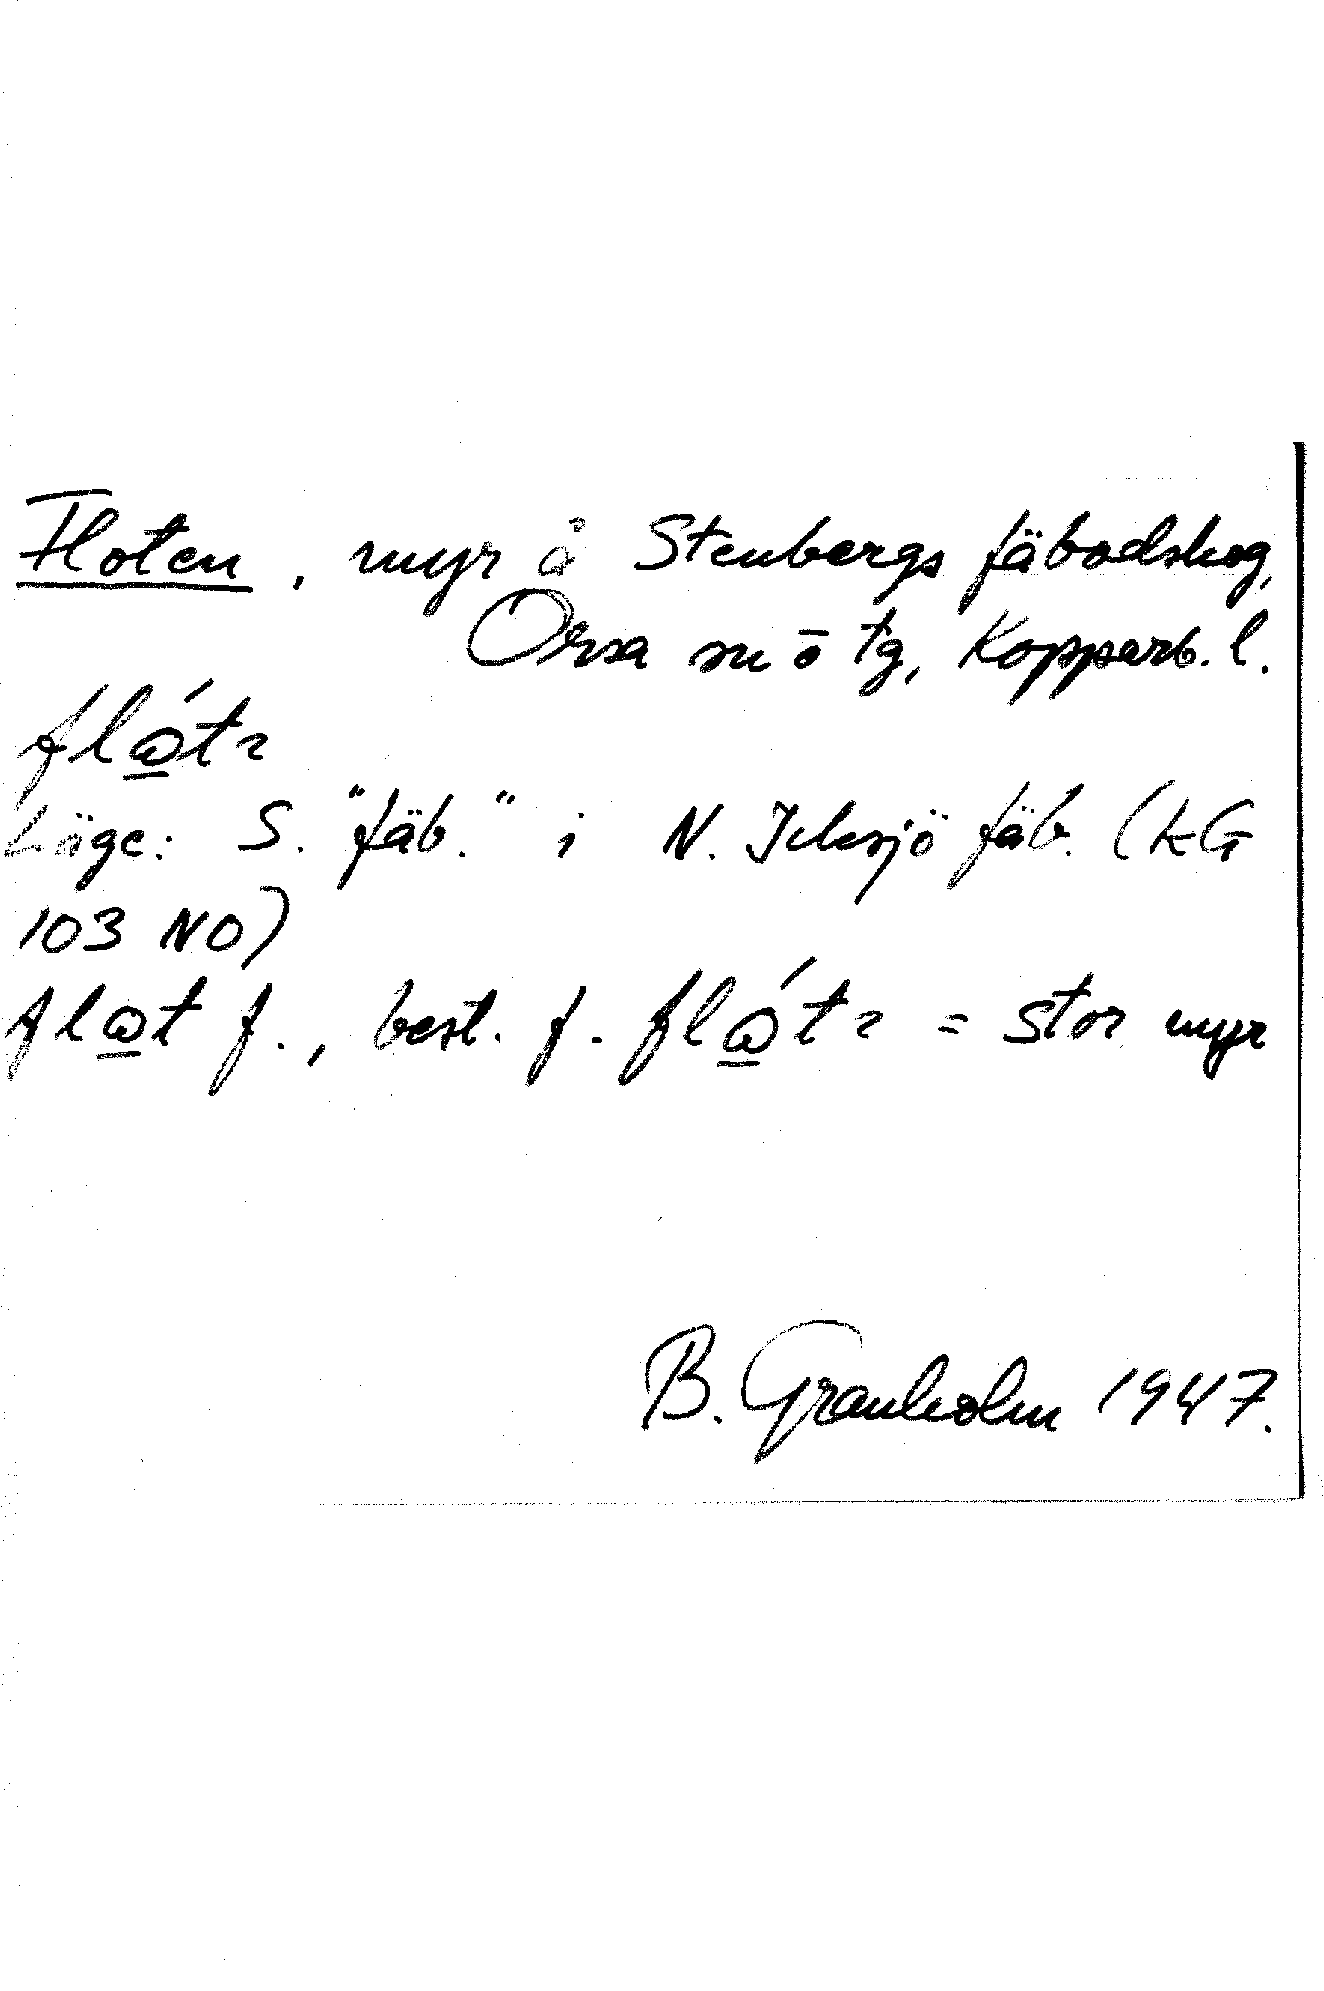 Floten, myr å Stenbergs fäbodskog,
Orsa sn ō tg, Kopparb. l.
Läge: S. "fäb." i N. Ickesjö fäb. (KG
103 NO)
f., best. f. = stor myr
B. Granholm 1947.